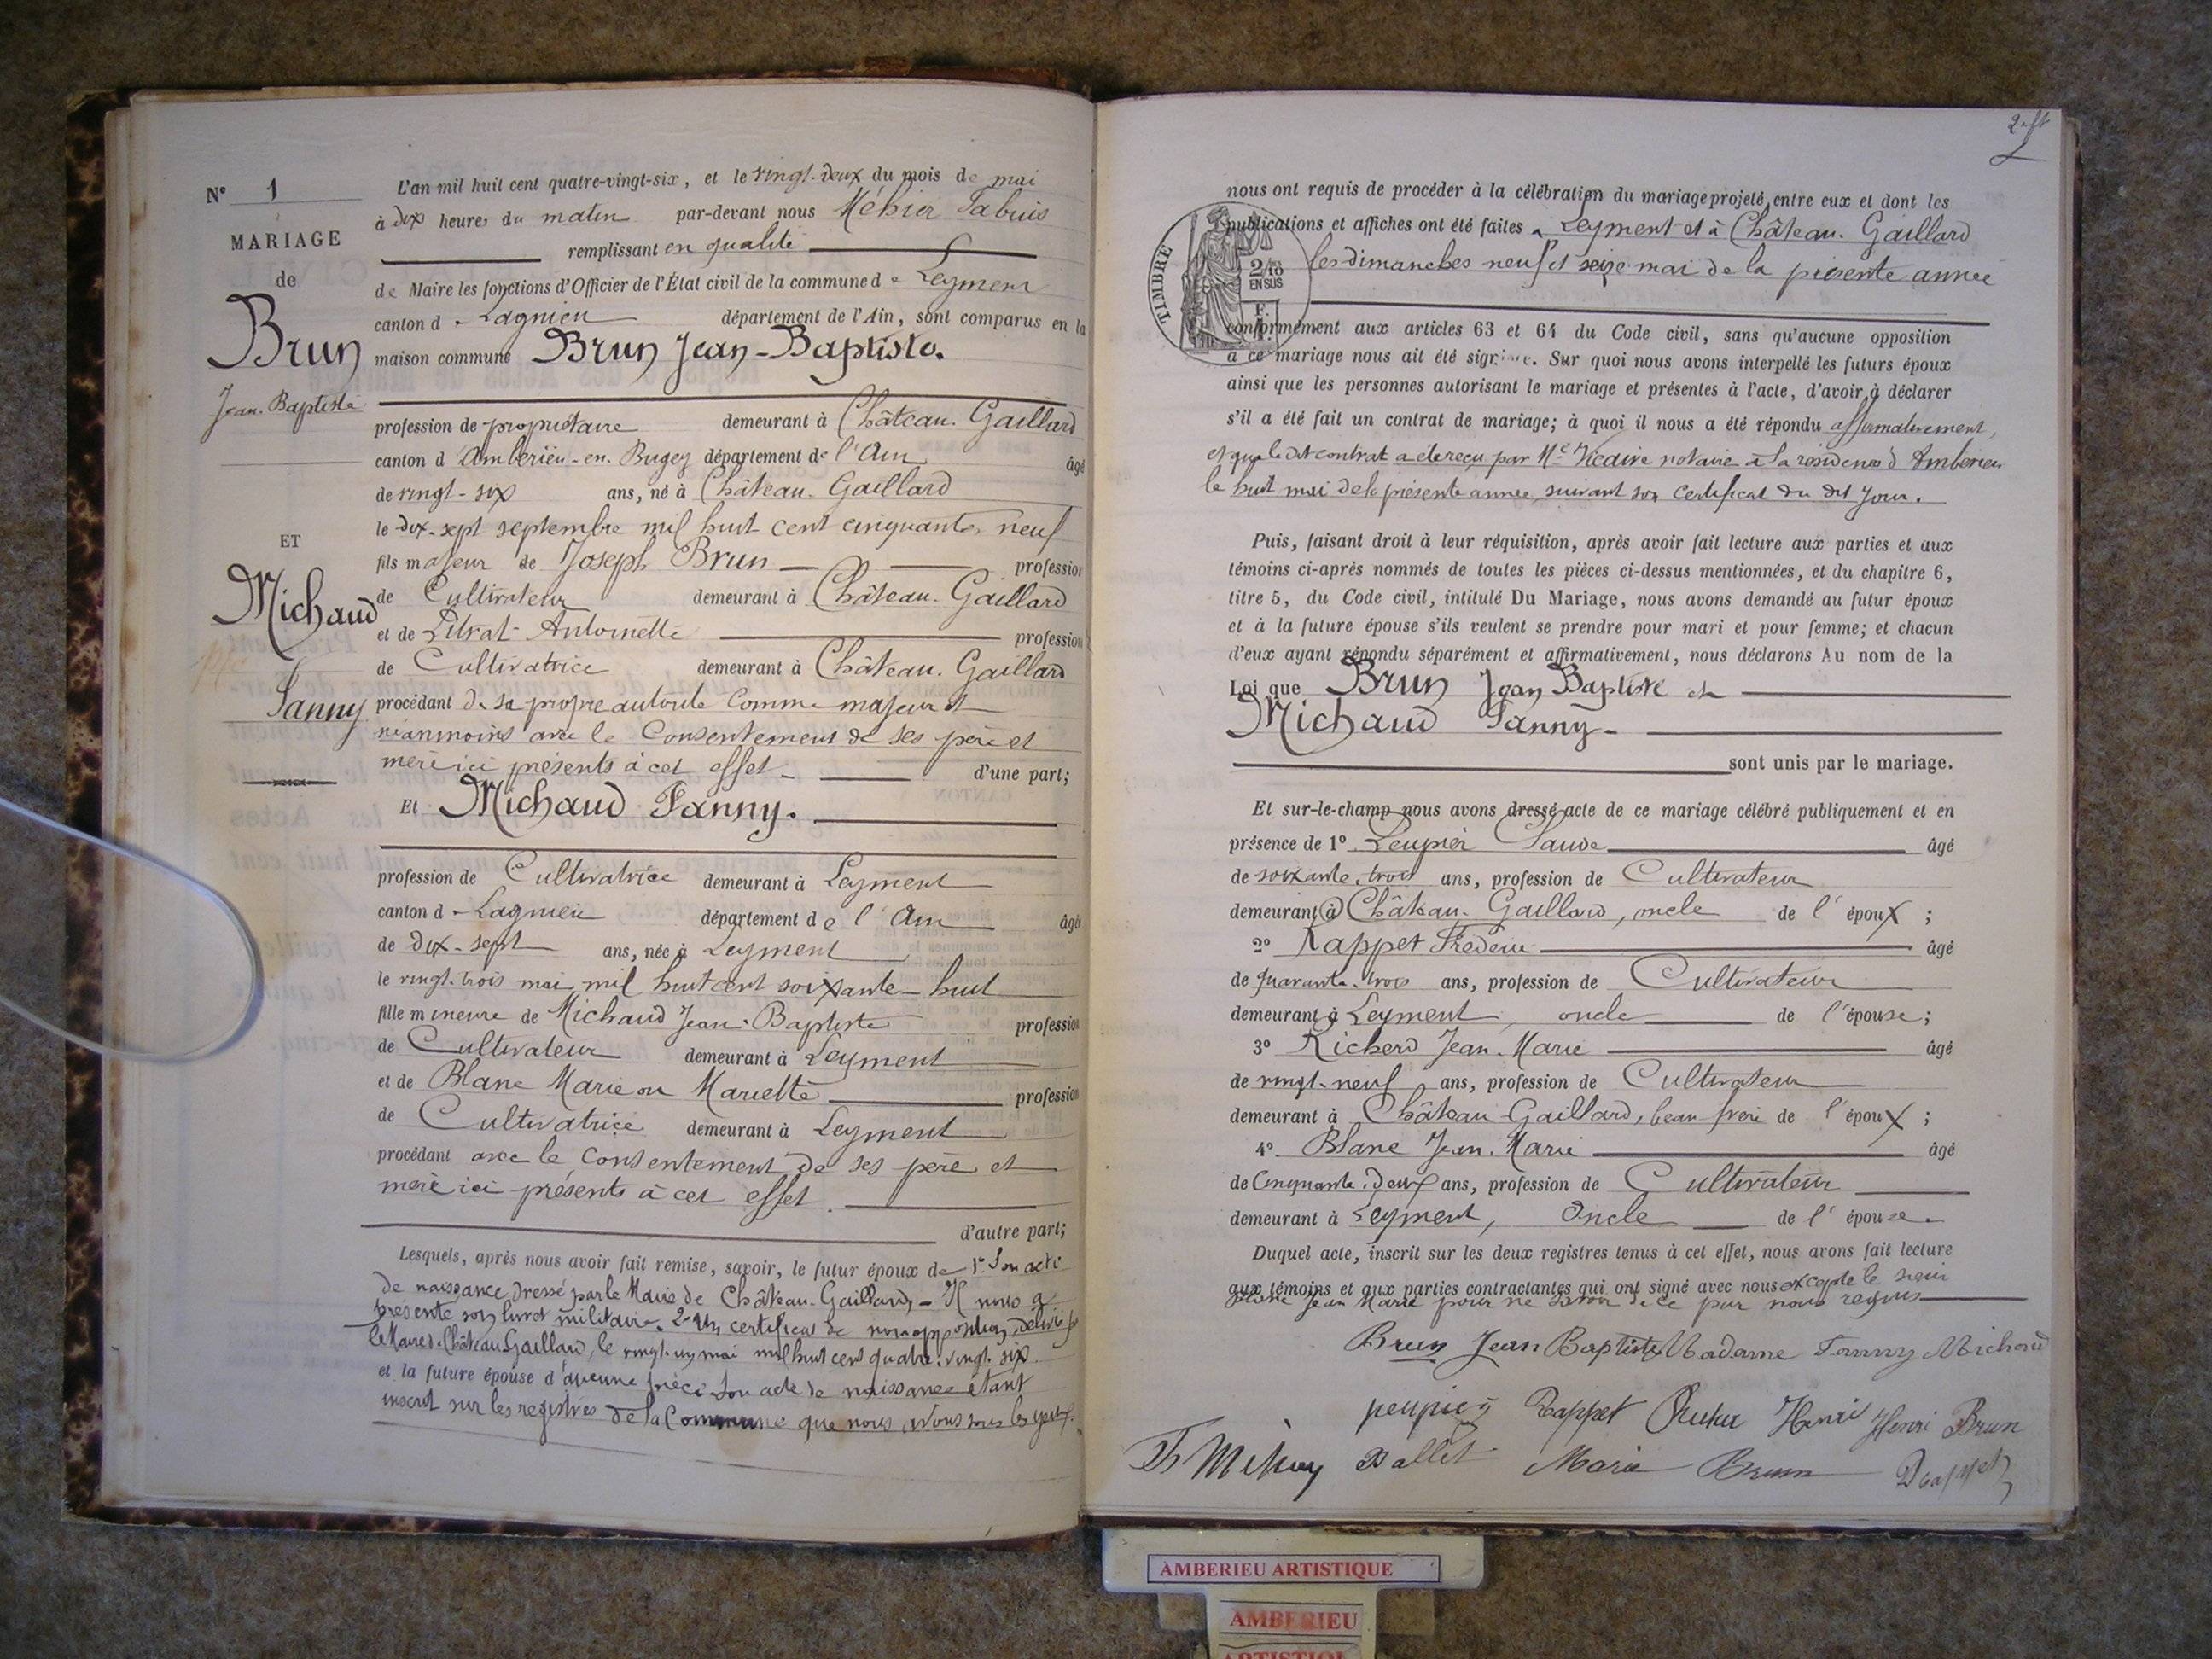 N° 1
MARIAGE
de
Brun
Jean-Baptiste
ET
Michaud
Fanny
L'an mil huit cent quatre-vingt-six, et le vingt-deux du mois de mai
à dix heures du matin par-devant nous Méhier
remplissant en qualité
de Maire les fonctions d'Officier de l'État civil de la commune de Leyment
canton de Lagnieu département de l'Ain, sont comparus en la
maison commune Brun Jean-Baptiste.
profession de propriétaire demeurant à Château-Gaillard
canton d'Ambérieu-en-Bugey département de l'Ain âgé
de vingt-six ans, né à Château-Gaillard
le dix-sept septembre mil huit cent cinquante-neuf
fils majeur de Joseph Brun profession
de Cultivateur demeurant à Château-Gaillard
et de Antoinette profession
de Cultivatrice demeurant à Château-Gaillard
procédant de sa propre autorité comme majeur et
néanmoins avec le Consentement de ses père et
mère ici présents à cet effet d'une part;
Et Michaud Fanny.
profession de Cultivatrice demeurant à Leyment
canton de Lagnieu département de l'Ain âgée
de dix-sept ans, née à Leyment
le vingt-trois mai mil huit cent soixante-huit
fille mineure de Michaud Jean-Baptiste profession
de Cultivateur demeurant à Leyment
et de Blanc Marie ou Mariette profession
de Cultivatrice demeurant à Leyment
procédant avec le Consentement de ses père et
mère ici présents à cet effet.
d'autre part;
Lesquels, après nous avoir fait remise, savoir, le futur époux de 1° Son acte
de naissance dressé par le Maire de Château-Gaillard, - Il nous a
présenté son livret militaire. 2° Un certificat de non opposition, délivré par
le Maire de Château Gaillard, le vingt-un mai mil huit cent quatre-vingt-six
et la future épouse d'aucune pièce son acte de naissance étant
inscrit sur les registres de la Commune que nous avons sous les yeux.
2
nous ont requis de procéder à la célébration du mariage projeté entre eux et dont les
publications et affiches ont été faites à Leyment et à Château-Gaillard
les dimanches neuf et seize mai de la présente année
TIMBRE
2/10
EN SUS
conformément aux articles 63 et 64 du Code civil, sans qu'aucune opposition
à ce mariage nous ait été signifiée. Sur quoi nous avons interpellé les futurs époux
ainsi que les personnes autorisant le mariage et présentes à l'acte, d'avoir à déclarer
s'il a été fait un contrat de mariage; à quoi il nous a été répondu affirmativement,
et que le dit contrat a été reçu par Me Vicaire notaire à la résidence d'Ambérieu
le huit mai de la présente année, suivant son certificat du dit jour.
Puis, faisant droit à leur réquisition, après avoir fait lecture aux parties et aux
témoins ci-après nommés de toutes les pièces ci-dessus mentionnées, et du chapitre 6,
titre 5, du Code civil, intitulé Du Mariage, nous avons demandé au futur époux
et à la future épouse s'ils veulent se prendre pour mari et pour femme; et chacun
d'eux ayant répondu séparément et affirmativement, nous déclarons Au nom de la
Loi que Brun Jean Baptiste et
Michaud Fanny-
sont unis par le mariage.
Et sur-le-champ nous avons dressé acte de ce mariage célébré publiquement et en
présence de 1° Peupier âgé
de soixante-trois ans, profession de Cultivateur
demeurant à Château-Gaillard, oncle de l'époux;
2° Rappet Frédéric âgé
de quarante-trois ans, profession de Cultivateur
demeurant à Leyment, oncle de l'épouse;
3° Richerd Jean-Marie âgé
de vingt-neuf ans, profession de Cultivateur
demeurant à Château-Gaillard, beau frère de l'époux;
4° Blanc Jean-Marie âgé
de Cinquante-deux ans, profession de Cultivateur
demeurant à Leyment, Oncle de l'épouse.
Duquel acte, inscrit sur les deux registres tenus à cet effet, nous avons fait lecture
aux témoins et aux parties contractantes qui ont signé avec nous excepté le sieur
Blanc Jean Marie pour ne savoir de ce par nous requis
Brun Jean Baptiste Madame Fanny Michaud
peupier Rappet Henri Henri Brun
Ballet Marie Brun
AMBERIEU ARTISTIQUE
AMBERIEU
ARTISTIQUE